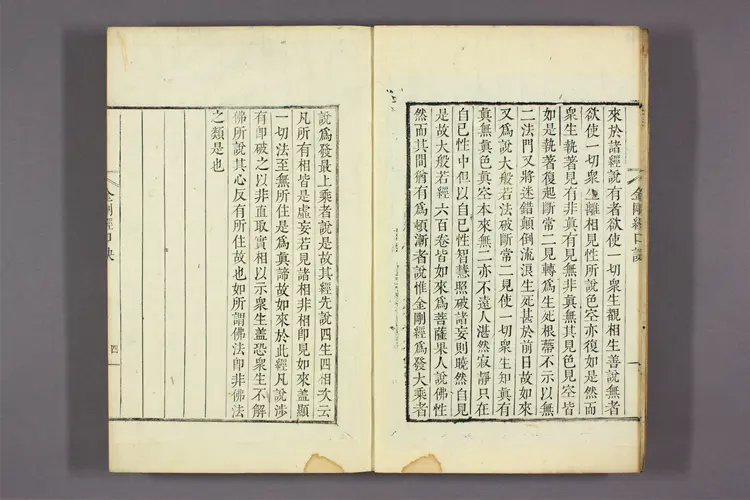 來於諸經說有者欲使一切衆生覩相生善說無者
欲使一切衆生離相見性所說色空亦復如是然而
衆生執著見有非眞有見無非眞無其見色見空皆
如是執著復起斷常二見轉爲生死根蔕不示以無
二法門又將迷錯顛倒流浪生死甚於前日故如來
又爲說大般若法破斷常二見使一切衆生知眞有
眞無眞色眞空本來無二亦不遠人湛然寂靜只在
自己性中但以自己性智慧照破諸妄則曉然自見
是故大般若經六百卷皆如來爲菩薩果人說佛性
然而其間猶有爲頓漸者說惟金剛經爲發大乘者
金剛經口訣
說爲發最上乘者說是故其經先說四生四相次云
凡所有相皆是虛妄若見諸相非相卽見如來蓋顯
一切法至無所住是爲眞諦故如來於此經凡說涉
有卽破之以非直取實相以示衆生蓋恐衆生不解
佛所說其心反有所住故也如所謂佛法卽非佛法
之類是也
金剛經口訣
四